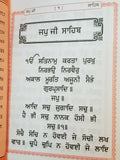 ਜਪੁ ਜੀ
( ੧ )
ਸਾਹਿਬ
ਜਪੁ ਜੀ ਸਾਹਿਬ
ੴ ਸਤਿਨਾਮੁ ਕਰਤਾ ਪੁਰਖੁ
ਨਿਰਭਉ ਨਿਰਵੈਰੁ
ਅਕਾਲ ਮੂਰਤਿ ਅਜੂਨੀ ਸੈਭੰ
ਗੁਰਪ੍ਰਸਾਦਿ
॥ ਜਪੁ ॥
ਆਦਿ ਸਚੁ ਜੁਗਾਦਿ ਸਚੁ ॥
ਹੈ ਭੀ ਸਚੁ ਨਾਨਕ ਹੋਸੀ ਭੀ
ਸਚੁ ॥੧॥
ਸੋਚੈ ਸੋਚਿ ਨ ਹੋਵਈ ਜੇ ਸੋਚੀ ਲਖ
ਵਾਰ ॥ ਚੁਪੈ ਚੁਪਿ ਨ ਹੋਵਈ ਜੇ ਲਾਇ